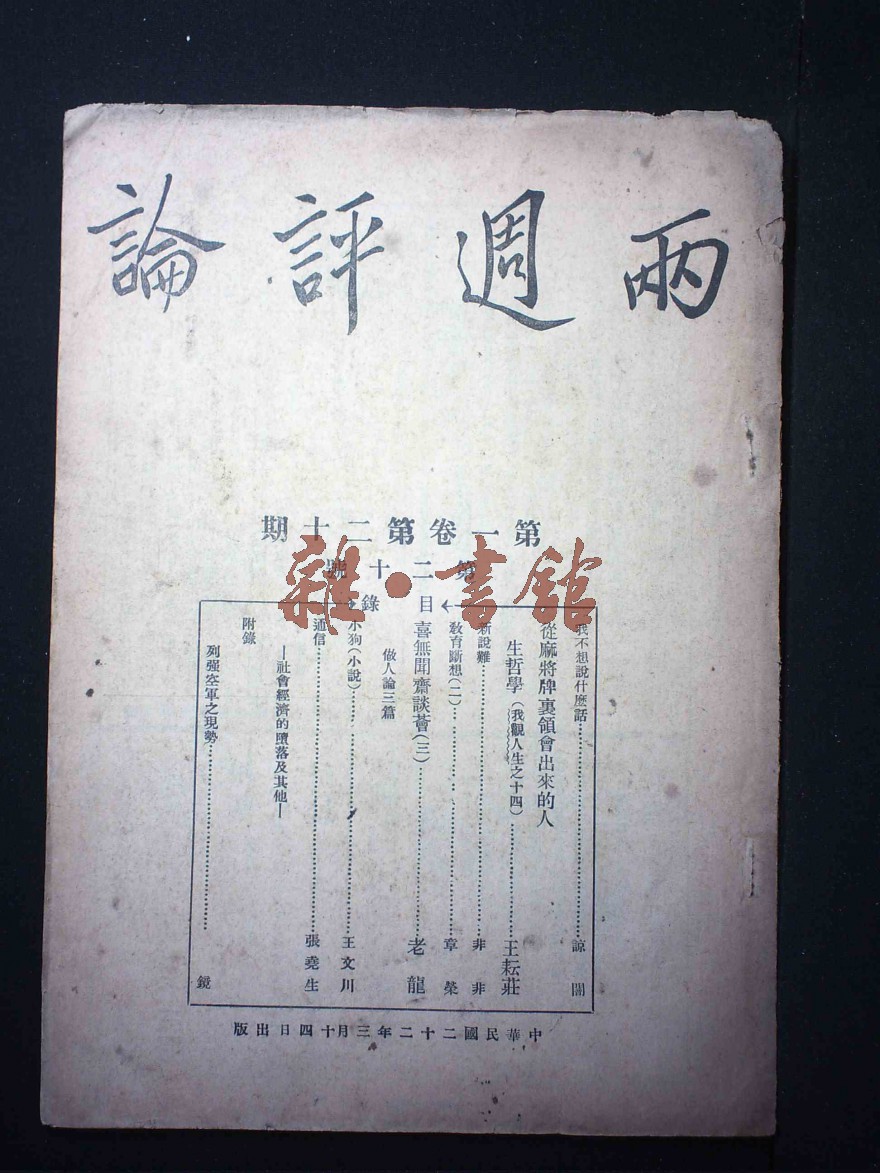 兩週評論
第一卷第二十期
第二十號
目錄
我不想說什麼話 諒 闇
從麻將牌裏領會出來的人
生哲學(我觀人生之十四) 王耘莊
新說難 非非
教育斷想(二) 章榮
喜無聞齋談薈(三) 老龍
做人論三篇
小狗(小說) 王文川
通信 張堯生
—社會經濟的墮落及其他—
附錄
列强空軍之現勢 鏡
中華民國二十二年三月十四日出版
雜·書館